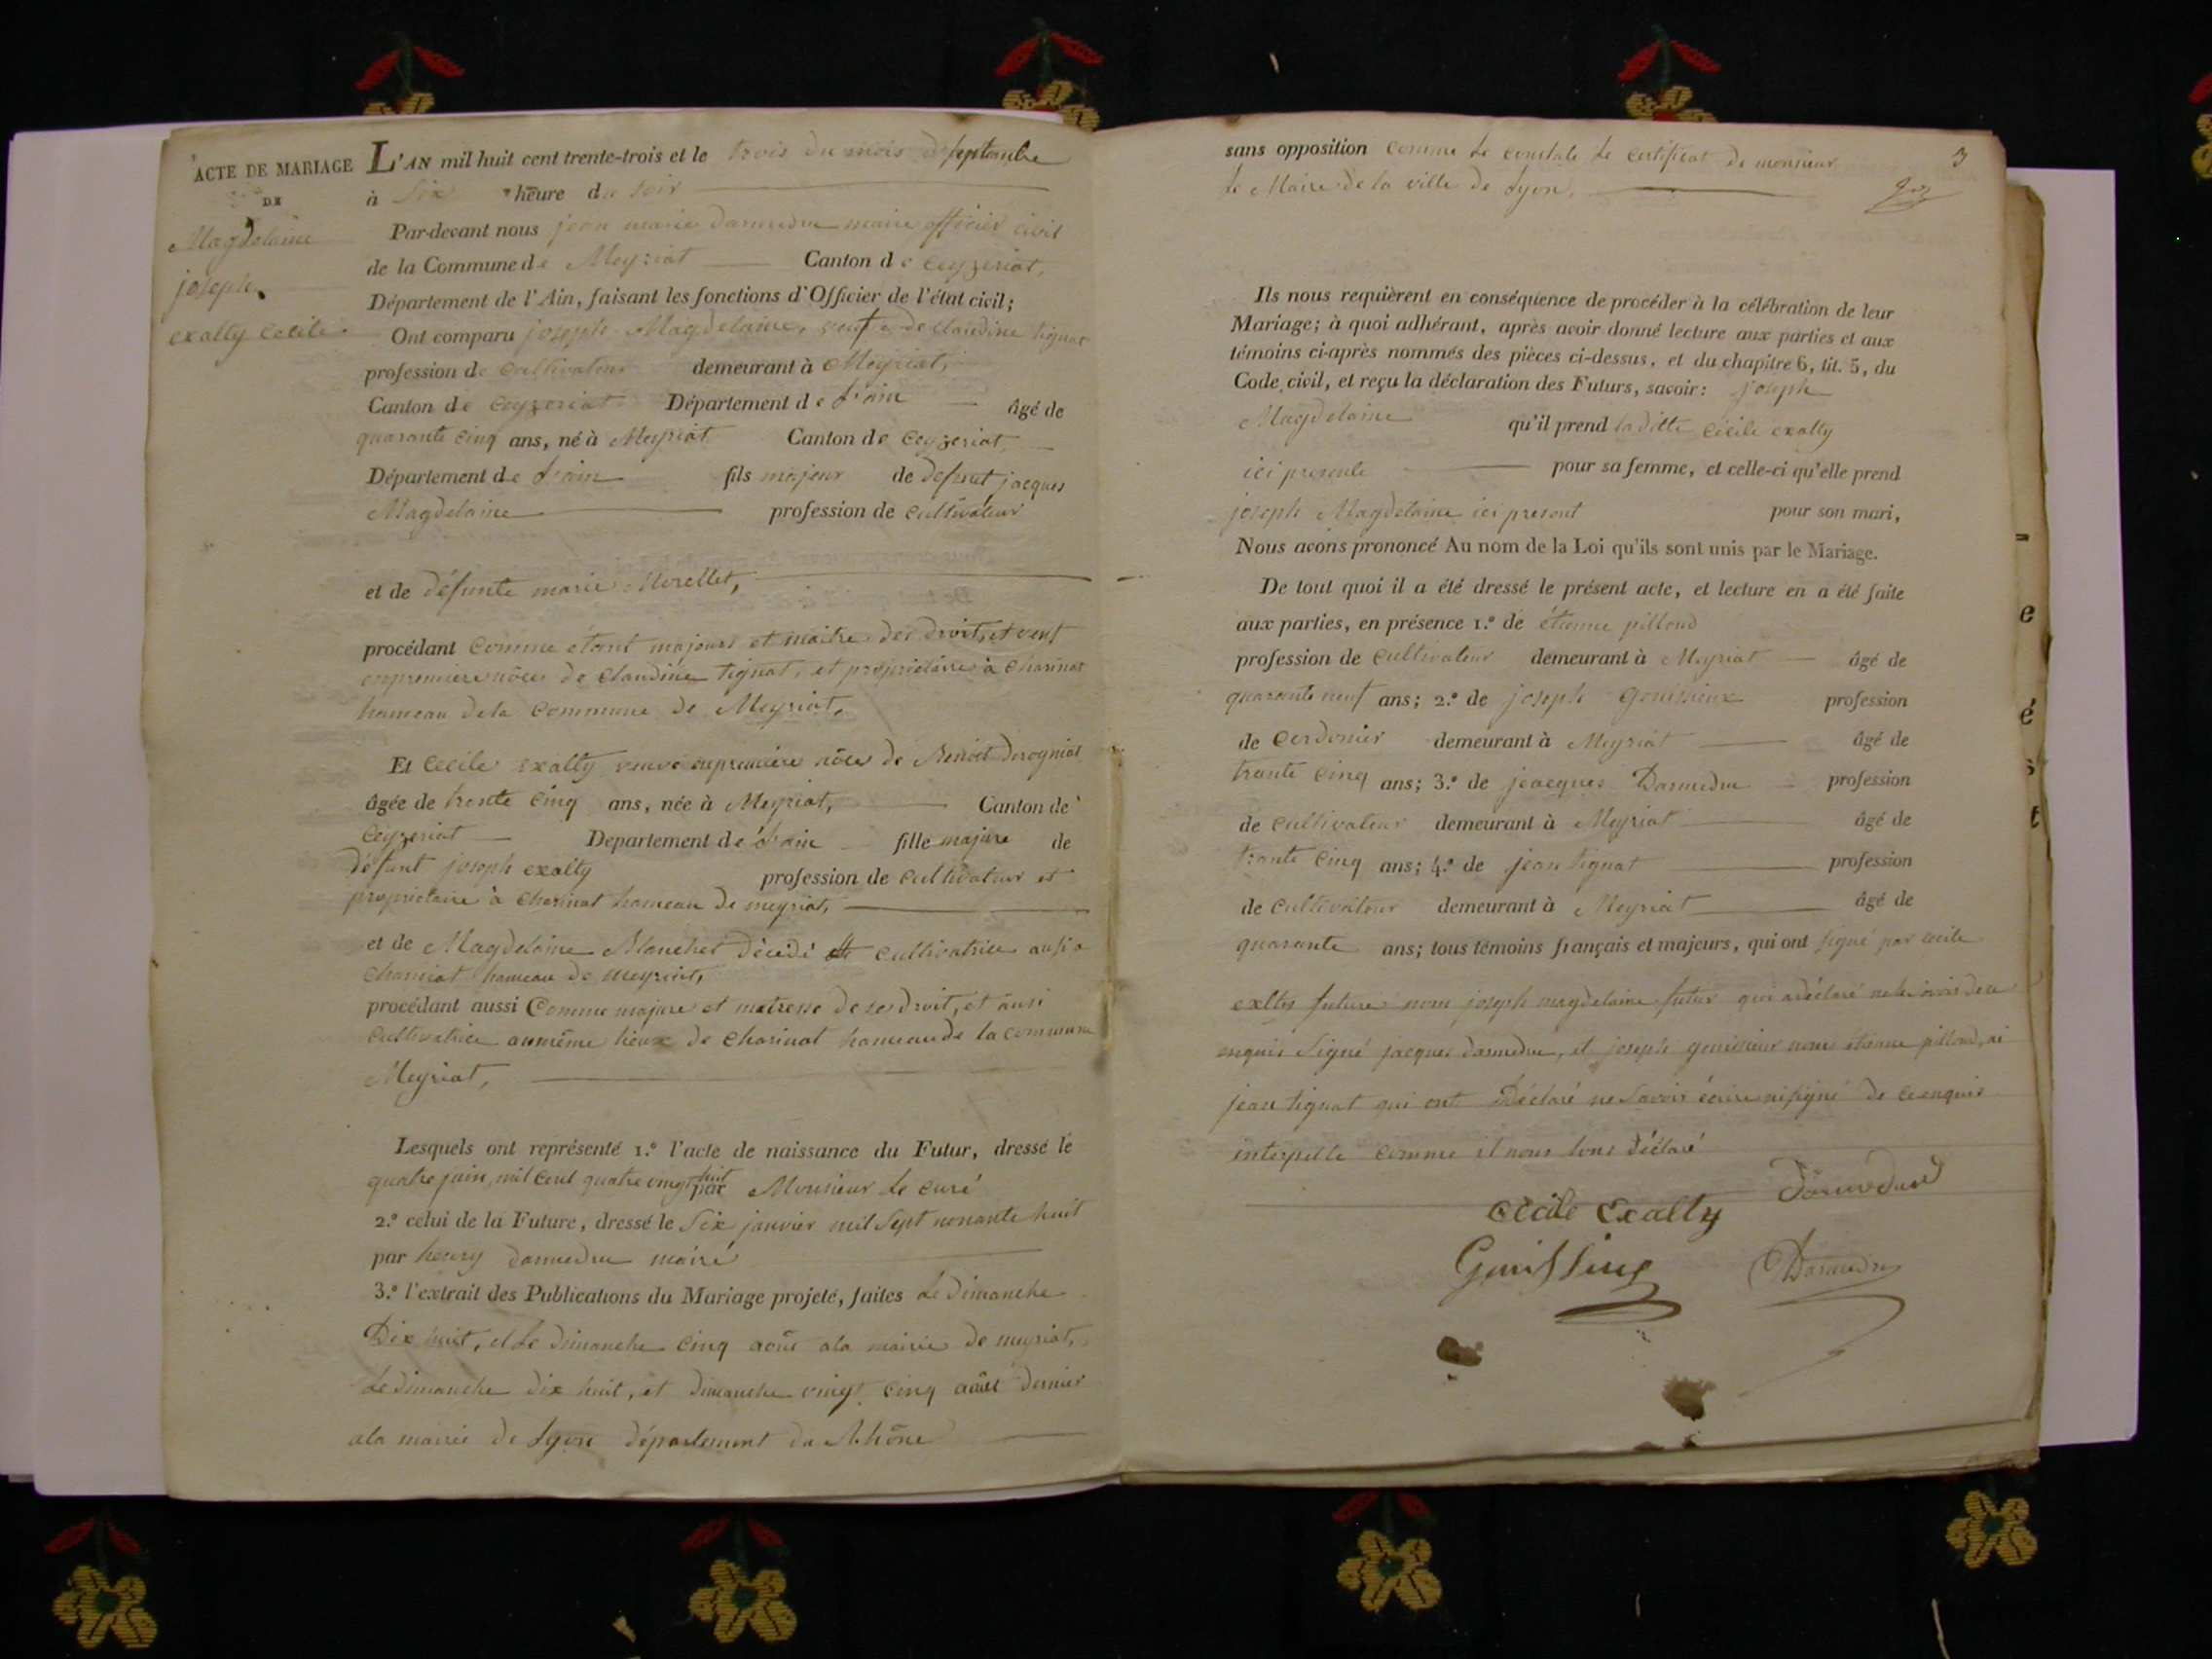 ACTE DE MARIAGE
DE
Magdelaine
joseph
exalty Cecile
L'AN mil huit cent trente-trois et le trois du mois de septembre
à Six heure du soir
Par-devant nous jean marie darmedru maire officier civil
de la Commune de Meyriat Canton de Ceyzeriat,
Département de l'Ain, faisant les fonctions d'Officier de l'état civil;
Ont comparu joseph Magdelaine, veuf de claudine tignat
profession de Cultivateur demeurant à Meyriat,
Canton de Ceyzeriat Département de L'ain âgé de
quarante cinq ans, né à Meyriat Canton de Ceyzeriat
Département de L'ain fils majeur de defunt jacques
Magdelaine profession de Cultivateur
et de défunte marie Morellet,
procédant Comme étant majeur et maitre des droits, et veuf
en premiere nôce de Claudine tignat, et propriétaire à Charinat
hameau de la Commune de Meyriat,
Et Cecile exalty veuve en premiere nôce de Benoit
âgée de trente Cinq ans, née à Meyriat, Canton de
Ceyzeriat Departement de L'ain fille majure de
défunt joseph exalty profession de Cultivateur et
propriétaire à Charinat hameau de meyriat,
et de Magdelaine Blanchet décédé Cultivatrice ausi a
Charinat hameau de meyriat,
procédant aussi Comme majure et matresse de ses droit, et ausi
Cultivatrice au même lieux de Charinat hameau de la commune
Meyriat,
Lesquels ont représenté 1.º l'acte de naissance du Futur, dressé le
quatre juin, mil Cent quatre vingt huit par Monsieur Le curé
2.º celui de la Future, dressé le Six janvier mil Sept nonante huit
par henry darmedru maire
3.º l'extrait des Publications du Mariage projeté, faites Le dimanche
Dix huit, et Le dimanche Cinq août a la mairie de meyriat,
Le dimanche dix huit, et dimanche vingt Cinq août dernier
a la mairie de Lyon département du Rhône
sans opposition Comme Le constate Le Certificat de monsieur
Le Maire de la ville de Lyon.
3
Ils nous requièrent en conséquence de procéder à la célébration de leur
Mariage; à quoi adhérant, après avoir donné lecture aux parties et aux
témoins ci-après nommés des pièces ci-dessus, et du chapitre 6, tit. 5, du
Code civil, et reçu la déclaration des Futurs, savoir: joseph
Magdelaine qu'il prend la ditte Cécile exalty
ici presente pour sa femme, et celle-ci qu'elle prend
joseph Magdelaine ici present pour son mari,
Nous avons prononcé Au nom de la Loi qu'ils sont unis par le Mariage.
De tout quoi il a été dressé le présent acte, et lecture en a été faite
aux parties, en présence 1.º de étienne pilloud
profession de Cultivateur demeurant à Meyriat âgé de
quarante neuf ans; 2.º de joseph Gouissieux profession
de Cordonier demeurant à Meyriat âgé de
trante Cinq ans; 3.º de jeacques Darmedru profession
de Cultivateur demeurant à Meyriat âgé de
trante Cinq ans; 4.º de jean tignat profession
de Cultivateur demeurant à Meyriat âgé de
quarante ans; tous témoins français et majeurs, qui ont signé par cecile
future non joseph magdelaine futur qui a déclaré ne le savoir de ce
enquis Signé jacques darmedru, et joseph non étienne pilloud, ni
jean tignat qui ont Déclaré ne Savoir écrire ni signé de ce enquis
interpelle Comme il nous l'ont déclaré
Cécile Exalty Darmedru
Gouissieux Darmedru